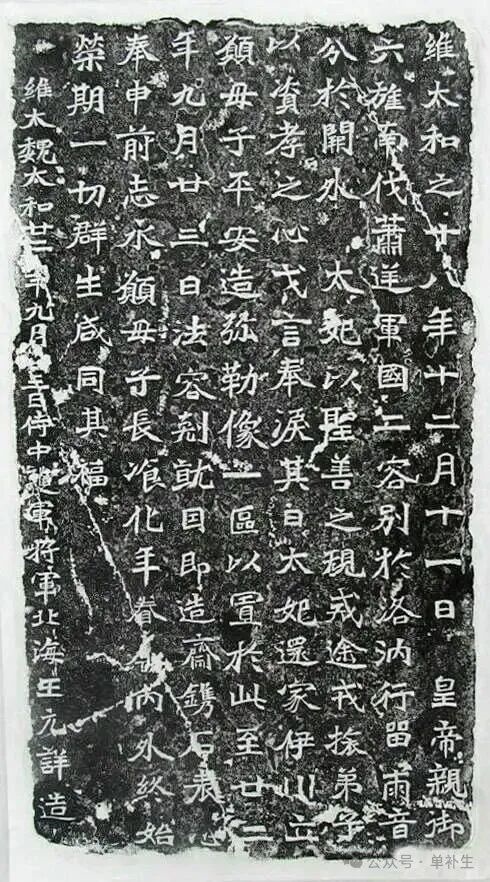 維太和之十八年十二月十一日 皇帝親御
六旌南伐蕭逆軍國二容別於洛汭行留兩音
分於闕外 太妃以聖善之規戒途戎旅弟子
以資孝之心戈言奉淚其日太妃還家伊川立
願母子平安造弥勒像一區以置於此至廿二
年九月廿三日法容剋就因即造齋鐫石表心
奉申前志永願母子長飡化年眷內外終始
榮期一切群生咸同其福
維大魏太和廿二年九月三日侍中護軍將軍北海王元詳造
公众号 · 单补生